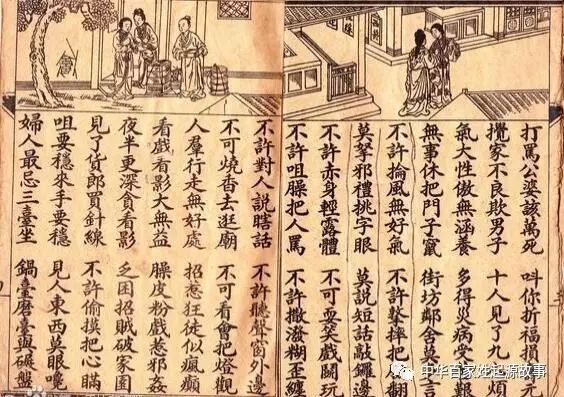 打罵公婆該萬死 叫你折福損元
攪家不良欺男子 十人見了九煩
氣大性傲無涵養 多得災病受艱
無事休把門子竄 街坊鄰舍莫言
不許掄風無好氣 不許摔把翻
莫拏邪禮挑字眼 莫說短話敲鑼邊
不許赤身輕露體 不可耍笑戲鬪玩
不許咀臊把人罵 不許撒潑糊歪纏
不許對人說瞎話 不許聽聲窗外邊
不可燒香去逛廟 不可看會把燈觀
人羣行走無好處 招惹狂徒似瘋癲
看戲看影大無益 臊皮粉戲惹邪姦
夜半更深貪看影 乏困招賊破家園
見了貨郎買針線 不許偷摸把心瞞
咀要穩來手要穩 見人東西莫眼饞
婦人最忌三臺坐 鍋臺磨臺與碾盤
中华百家姓起源故事